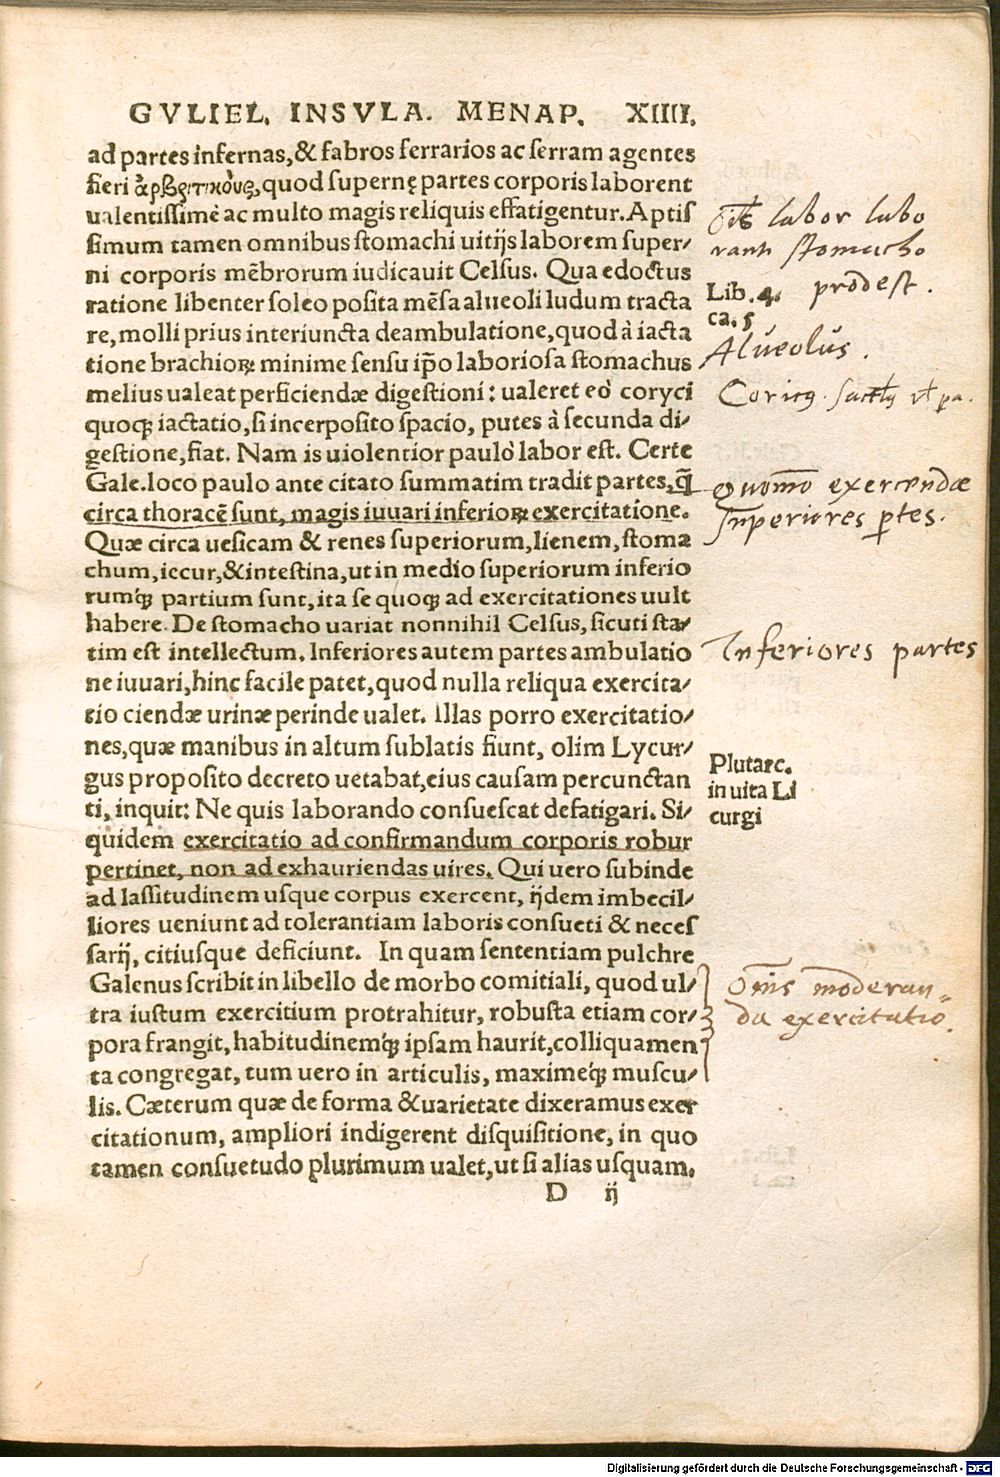 GVLIEL. INSVLA. MENAP. XIIII.
ad partes infernas, & fabros ferrarios ac serram agentes
fieri ἀρθριτικοὺς, quod supernę partes corporis laborent
ualentissimè ac multo magis reliquis effatigentur. Aptis
simum tamen omnibus stomachi uitijs laborem super/
ni corporis mẽbrorum iudicauit Celsus. Qua edoctus
ratione libenter soleo posita mẽsa alueoli ludum tracta
re, molli prius interiuncta deambulatione, quod à iacta
tione brachioꝝ minime sensu ip̃o laboriosa stomachus
melius ualeat perficiendæ digestioni: ualeret eò coryci
quoqꝫ iactatio, si interposito spacio, putes à secunda di/
gestione, fiat. Nam is uiolentior paulò labor est. Certe
Gale. loco paulo ante citato summatim tradit partes, q̃
circa thoracẽ sunt, magis iuuari inferioꝝ exercitatione.
Quæ circa uesicam & renes superiorum, lienem, stoma
chum, iecur, & intestina, ut in medio superiorum inferio
rumqꝫ partium sunt, ita se quoqꝫ ad exercitationes uult
habere. De stomacho uariat nonnihil Celsus, sicuti sta/
tim est intellectum. Inferiores autem partes ambulatio
ne iuuari, hinc facile patet, quod nulla reliqua exercita/
tio ciendæ urinæ perinde ualet. Illas porro exercitatio/
nes, quæ manibus in altum sublatis fiunt, olim Lycur/
gus proposito decreto uetabat, eius causam percunctan
ti, inquit: Ne quis laborando consuescat defatigari. Si/
quidem exercitatio ad confirmandum corporis robur
pertinet, non ad exhauriendas uires. Qui uero subinde
ad lassitudinem usque corpus exercent, ijdem imbecil/
liores ueniunt ad tolerantiam laboris consueti & neces
sarij, citiusque deficiunt. In quam sententiam pulchre
Galenus scribit in libello de morbo comitiali, quod ul/
tra iustum exercitium protrahitur, robusta etiam cor/
pora frangit, habitudinemqꝫ ipsam haurit, colliquamen
ta congregat, tum uero in articulis, maximeqꝫ muscu/
lis. Cæterum quæ de forma & uarietate dixeramus exer
citationum, ampliori indigerent disquisitione, in quo
tamen consuetudo plurimum ualet, ut si alias usquam.
D ij
labor labo
ranti stomacho
prodest.
Lib. 4.
ca. 5
Alueolus.
Coricus.
Quomõ exercendæ
superiores ptes.
Inferiores partes
Plutarc.
in uita Li
curgi
Oñis moderan=
da exercitatio.
Digitalisierung gefördert durch die Deutsche Forschungsgemeinschaft - DFG